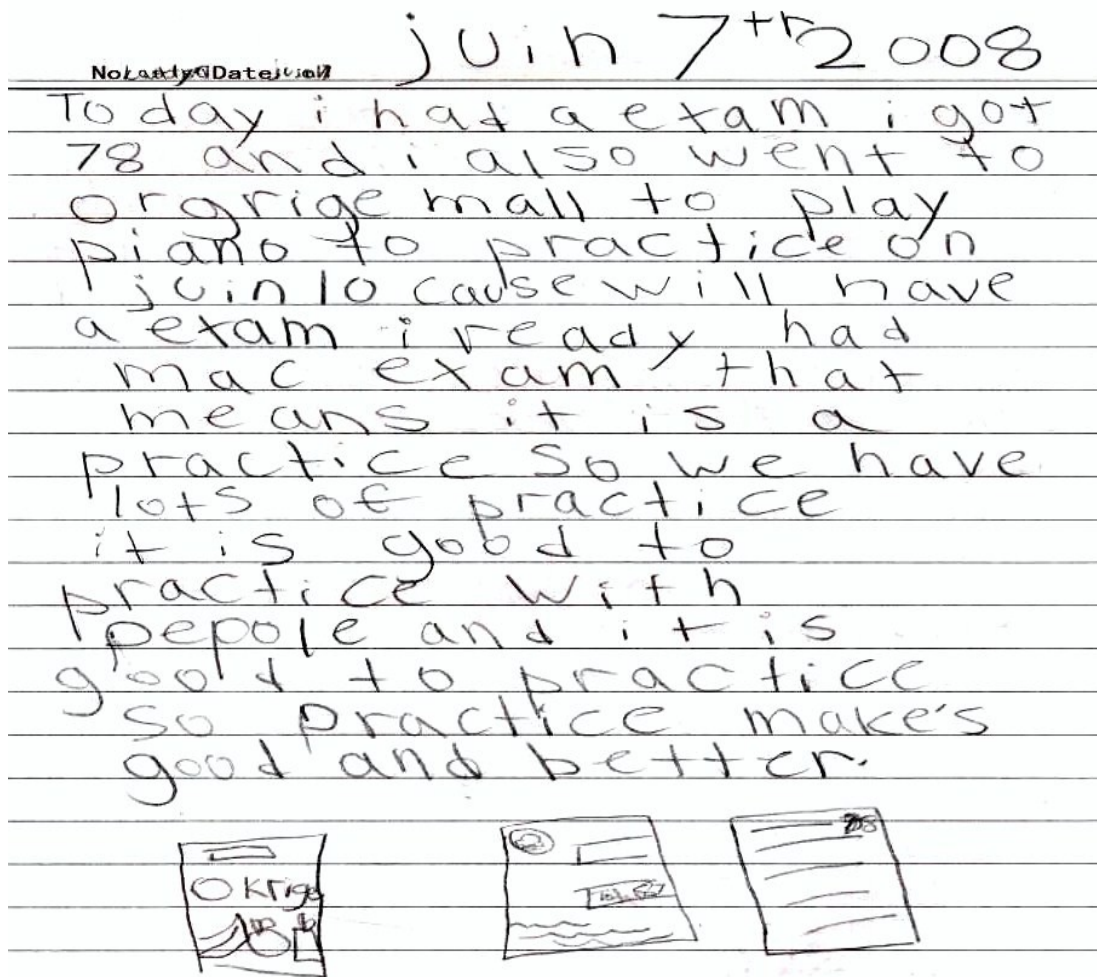 juin 7th 2008
No Date
Today i had a exam i got
78 and i also went to
orgrige mall to play
piano to practice on
juin 10 cause will have
a exam i ready had
mac exam that
means it is a
practice so we have
lots of practice
it is good to
practice with
pepole and it is
good to practice
so practice make's
good and better.
Okrige
78